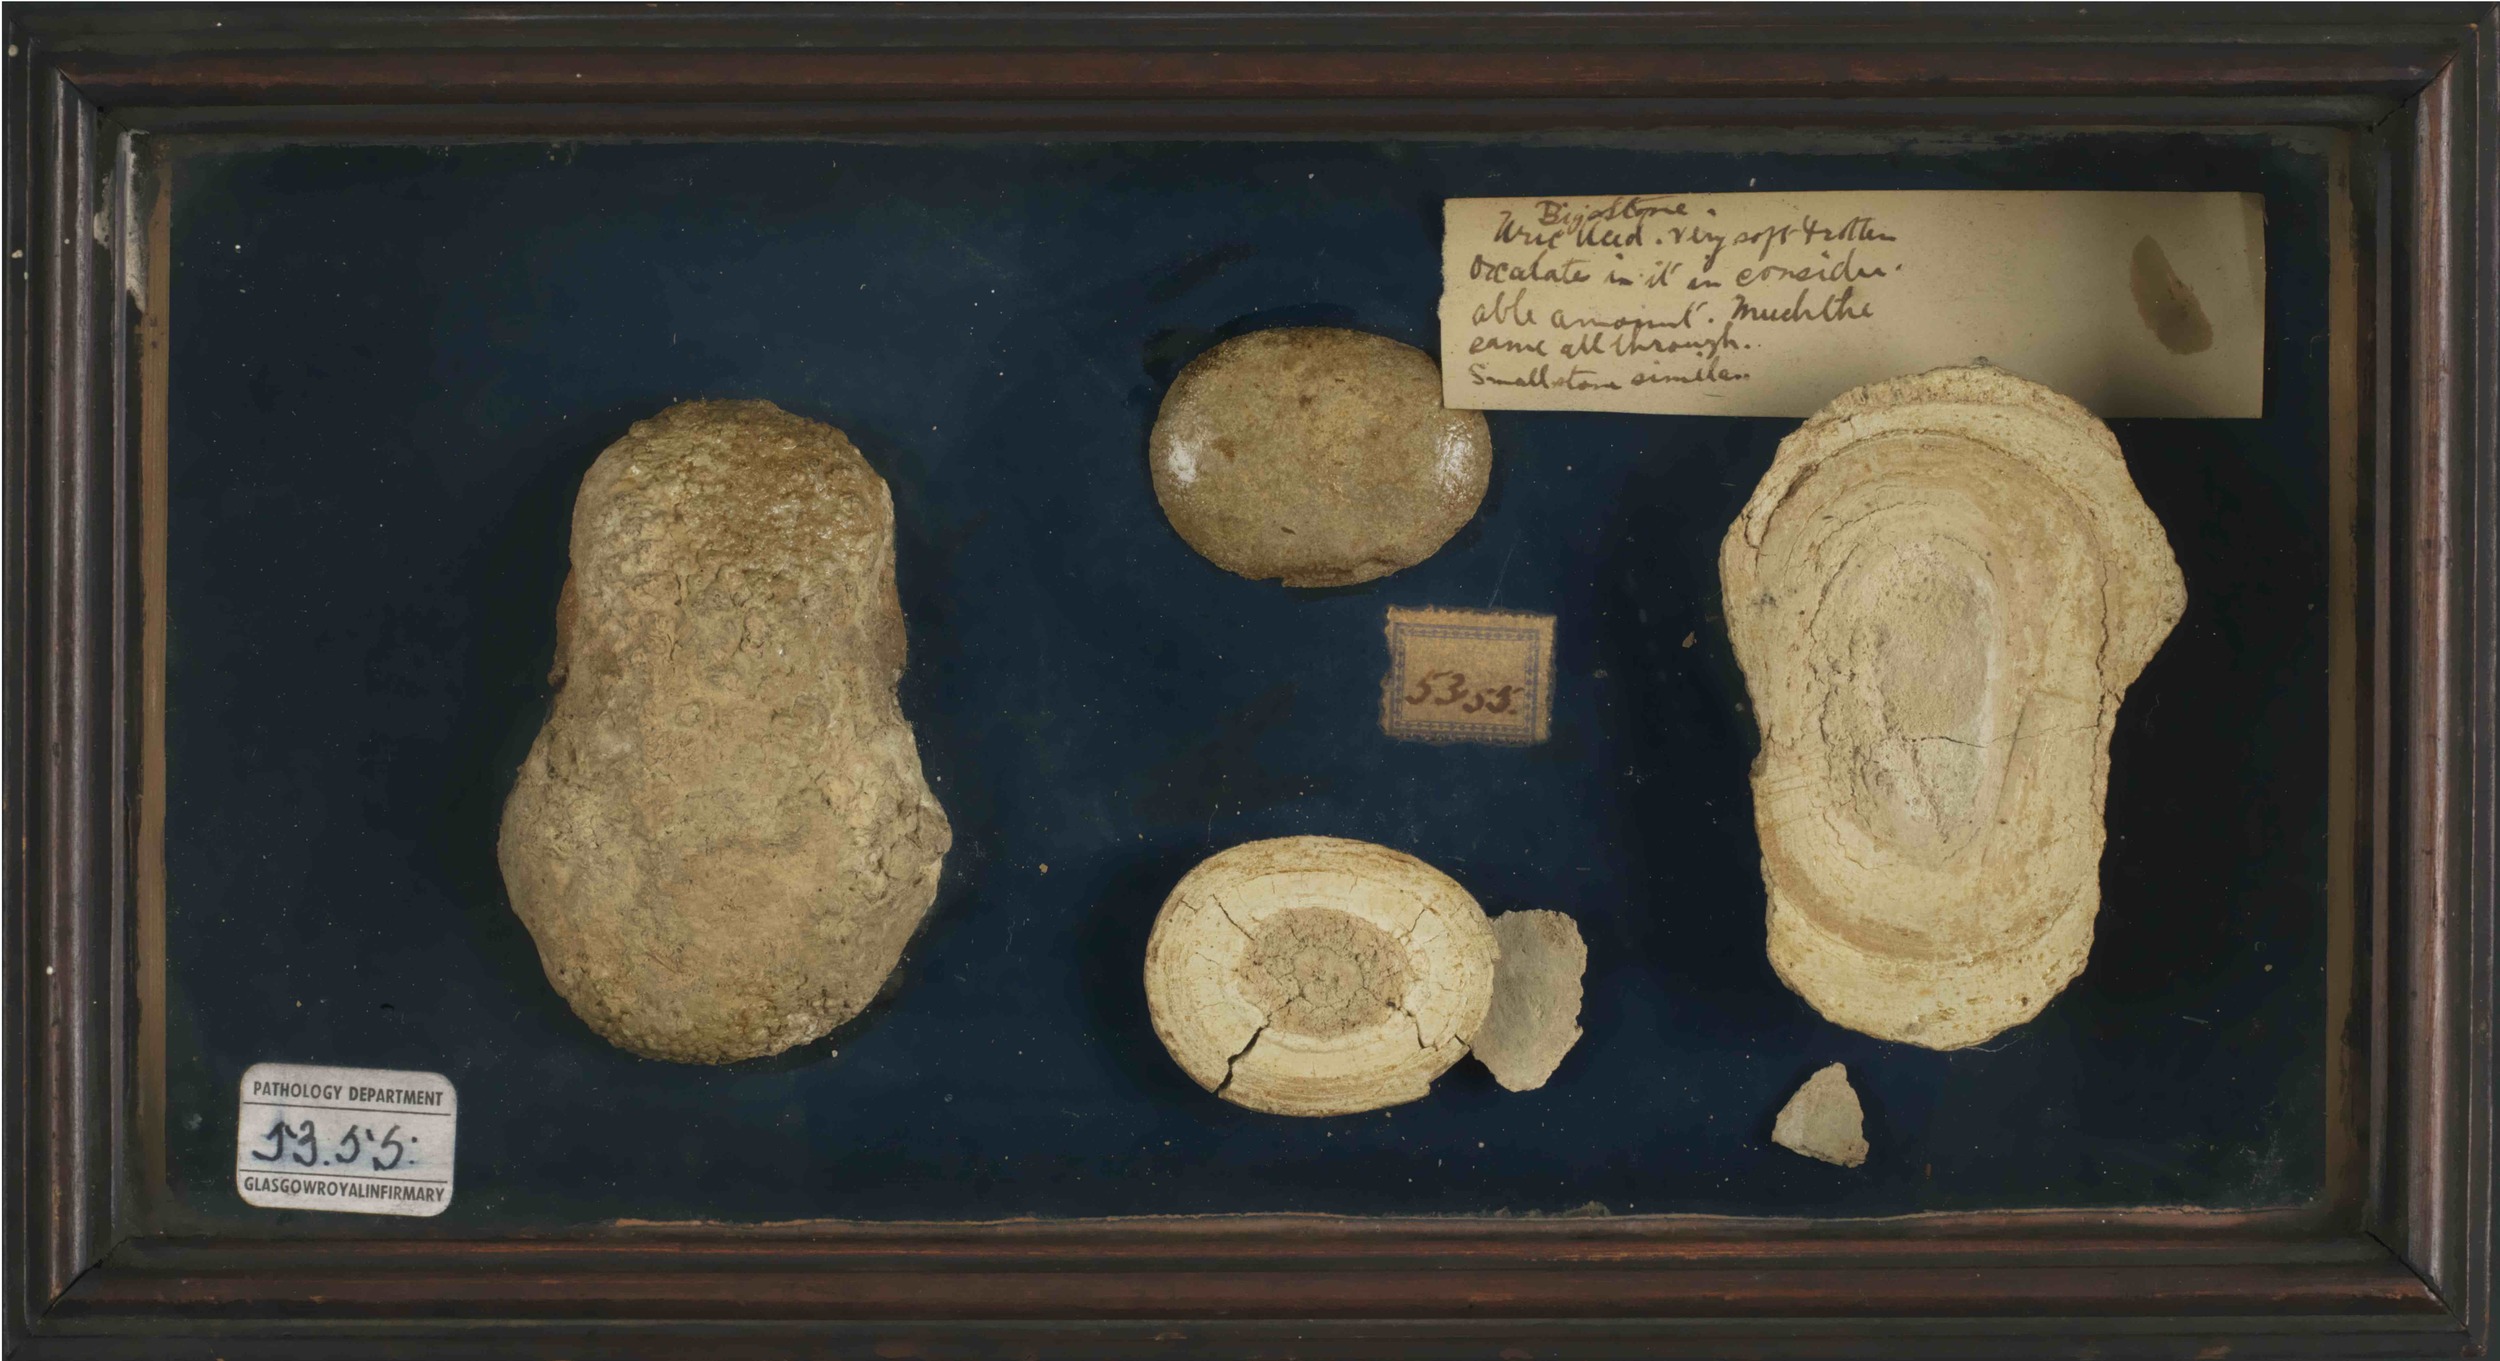 Big Stone.
Uric Acid. Very soft & rotten
Oxalates in it in consider-
able amount. Much the
same all through.
Small stone similar.
53.55.
PATHOLOGY DEPARTMENT
53.55.
GLASGOW ROYAL INFIRMARY